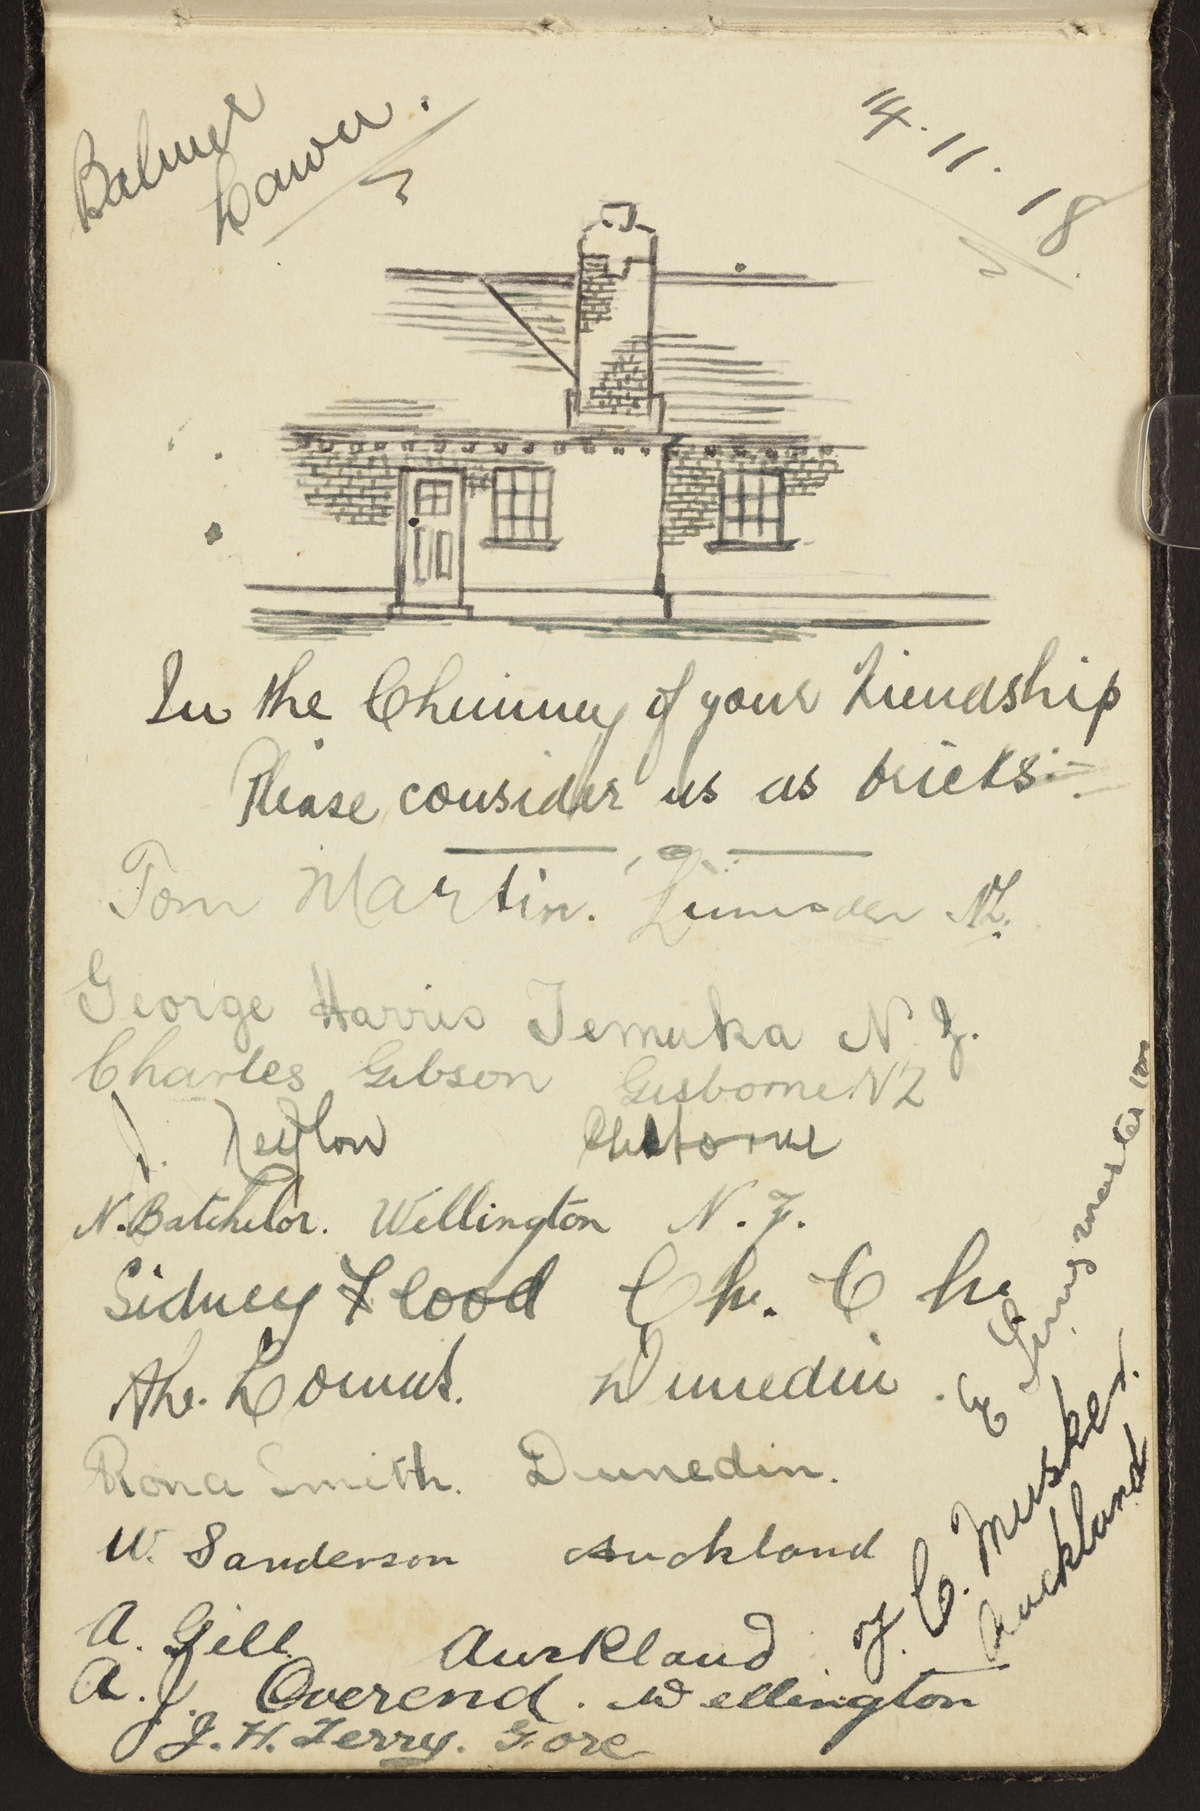 Balmer
Lawn.
14.11.18
In the Chimney of your Friendship
Please consider us as bricks:-
Tom Martin. N.Z.
George Harris Temuka N.Z.
Charles Gibson Gisborne NZ
J. Neylon
N. Batchelor. Wellington N.Z.
Sidney Flood Ch. Ch
Dunedin.
Rona Smith. Dunedin.
W. Sanderson Auckland
A. Gill Auckland
A.J. Overend. Wellington
J.H. Terry. Gore
C. Musker.
Auckland